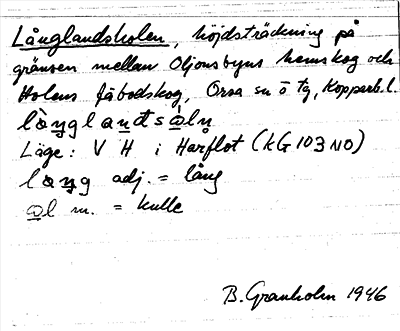 Långlandsholen, höjdsträckning på
gränsen mellan Oljonsbyns hemskog och
Holens fäbodskog, Orsa sn o tg, Kopparb.l.
Läge: V H i Harflot (kG 103 NO)
adj. = lång
m. = kulle
B. Granholm 1946